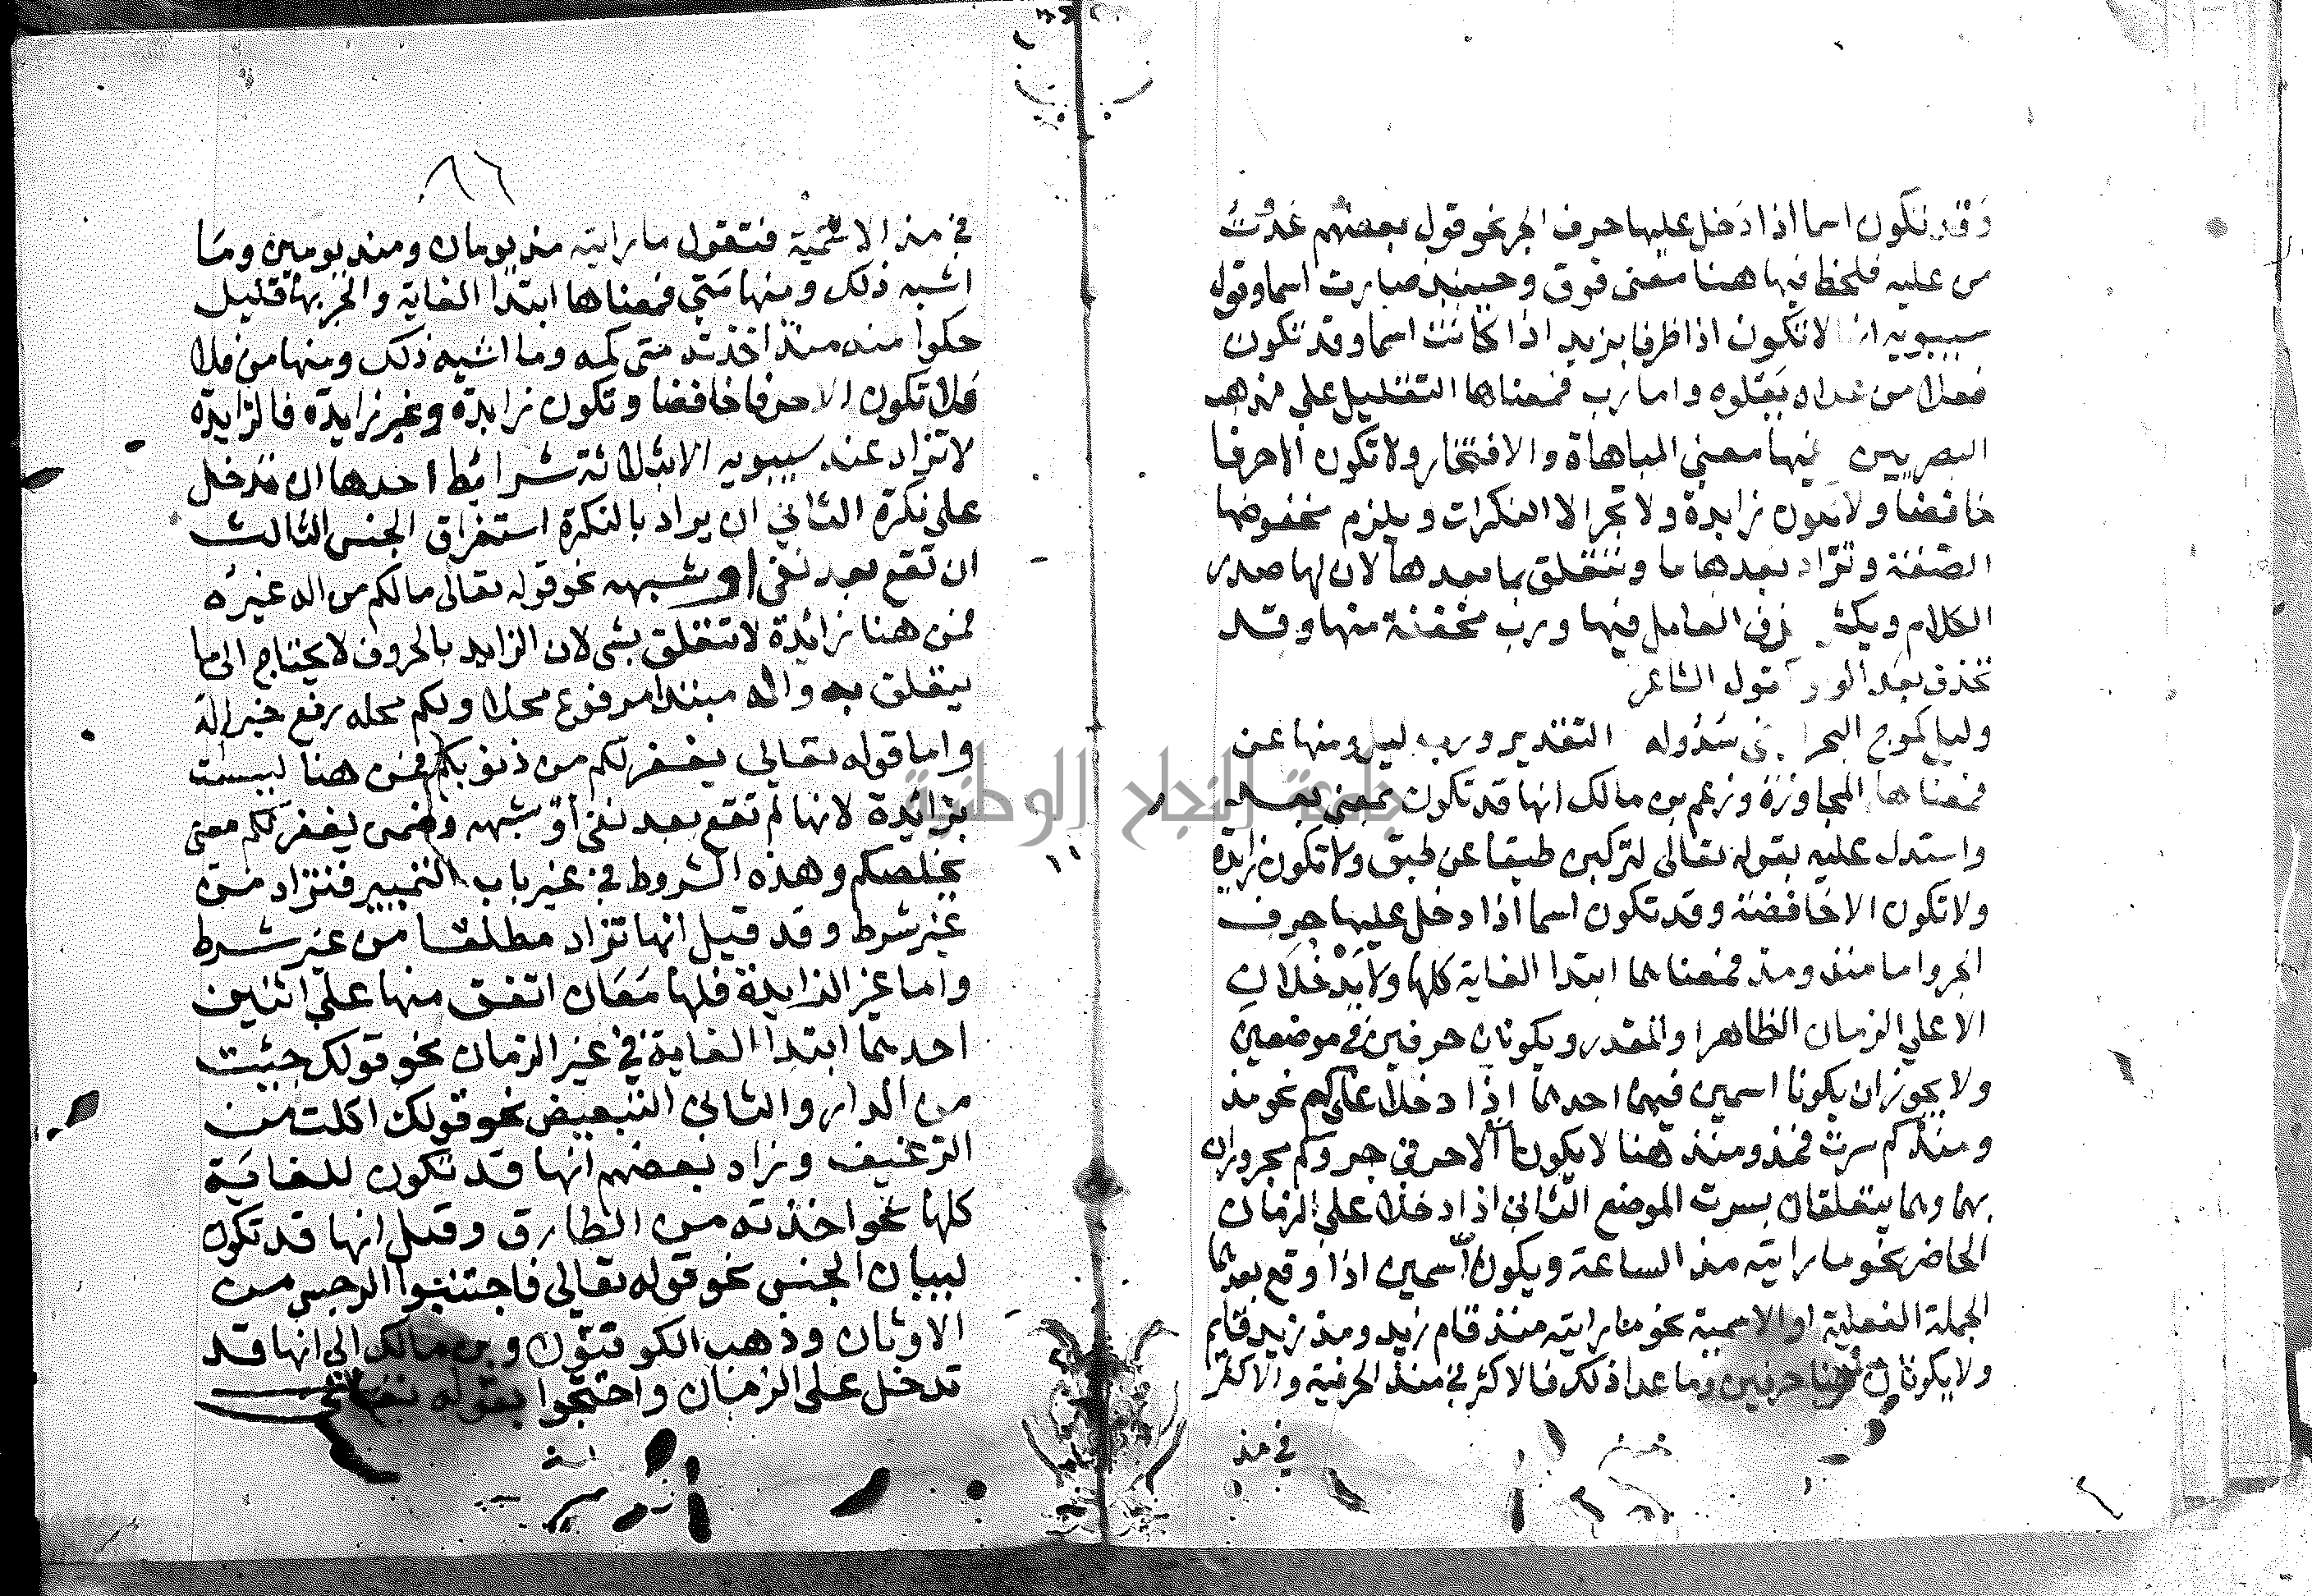 وقد تكون اسما اذا دخل عليها حرف الجر نحو قول بعضهم غدت
من عليه فلحظ فيها هنا معنى فوق وحينيذ صارت اسما وقول
سيبويه انها لا تكون اذا ظرفا يريد اذا كانت اسما وقد تكون
فعلا من علا يعلو واما رب فمعناها التقليل على مذهب
البصريين فيها معنى المباهاة والافتخار ولا تكون الا حرفا
خافضا ولا تكون زايدة ولا تجر الا النكرات ويلزم مخفوضها
الصفة وتزاد بعدها ما وتتعلق بما بعدها لان لها صدر
الكلام ويكثر حذف العامل فيها ورب مخففة منها وقد
تحذف بعد الواو كقول الشاعر
وليل كموج البحر ارخى سدوله التقدير ورب ليل ومنها عن
فمعناها المجاوزة وزعم بن مالك انها قد تكون بمعنى بعد
واستدل عليه بقوله تعالى لتركبن طبقا عن طبق ولا تكون زايدة
ولا تكون الا خافضة وقد تكون اسما اذا دخل عليها حرف
الجر واما منذ ومذ فمعناهما ابتدا الغاية كلها ولا يدخلان
الا على الزمان الظاهر او المقدر ويكونان حرفين في موضعين
ولا يجوز ان يكونا اسمين فيهما احدهما اذا دخلا على كم نحو مذ
ومنذ كم سرت فمذ ومنذ هنا لا يكونا الا حرفي جر وكم مجرور
بهما وهما يتعلقان بسرت الموضع الثاني اذا دخلا على الزمان
الحاضر نحو ما رايته مذ الساعة ويكونا اسمين اذا وقع بعدهما
الجملة الفعلية او الاسمية نحو ما رايته منذ قام زيد ومذ زيد قايم
ولا يكونان هنا حرفين وما عدا ذلك فالاكثر في منذ الحرفية والاكثر
في مذ
٨٦
في مذ الاسمية فتقول ما رايته مذ يومان ومنذ يومين وما
اشبه ذلك ومنها متى فمعناها ابتدا الغاية والجر بها قليل
حكوا منه اخذته متى كمه وما اشبه ذلك ومنها من فلا
فلا تكون الا حرفا خافضا وتكون زايدة وغير زايدة فالزايدة
لا تزاد عند سيبويه الا بثلاثة شرايط احدها ان تدخل
على نكرة الثاني ان يراد بالنكرة استغراق الجنس الثالث
ان تقع بعد نفي او شبهه نحو قوله تعالى مالكم من اله غيره
فمن هنا زائدة لا تتعلق بشي لان الزايد بالحروف لا يحتاج الى ما
يتعلق به واله مبتدا مرفوع محلا ولكم محله رفع خبر اله
واما قوله تعالى يغفر لكم من ذنوبكم فمن هنا ليست
بزايدة لانها لم تقع بعد نفي او شبهه وضمن يغفر لكم معنى
يخلصكم وهذه الشروط في غير باب التمييز فتزاد من
غير شرط وقد قيل انها تزاد مطلقا من غير شرط
واما غير الزايدة فلها معان اتفق منها على اثنين
احدهما ابتدا الغاية في غير الزمان نحو قولك جيت
من الدار والثاني التبعيض نحو قولك اكلت من
الرغيف وزاد بعضهم انها قد تكون للغاية
كلها نحو اخذته من الطارق وقيل انها قد تكون
لبيان الجنس نحو قوله تعالى فاجتنبوا الرجس من
الاوثان وذهب الكوفيون وبن مالك الى انها قد
تدخل على الزمان واحتجوا بقوله تعالى
جامعة النجاح الوطنية